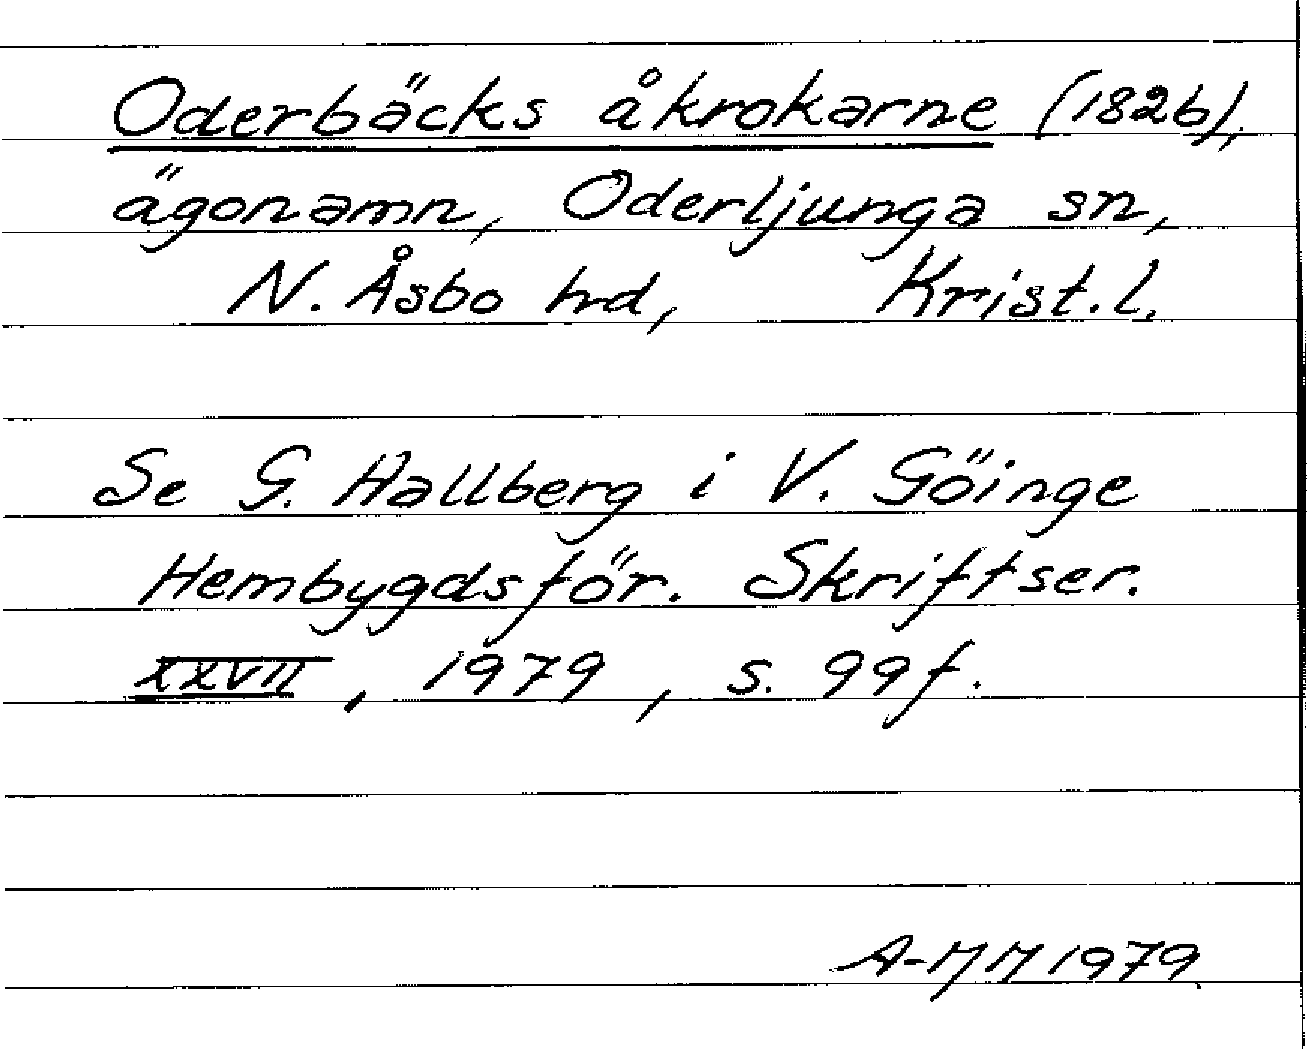 Oderbäcks åkrokarne (1826),
ägonamn, Oderljunga sn,
N. Åsbo hd, Krist. l.
Se G. Hallberg i V. Göinge
Hembygdsför. Skriftser.
XXVII, 1979, s. 99f.
A-MM 1979